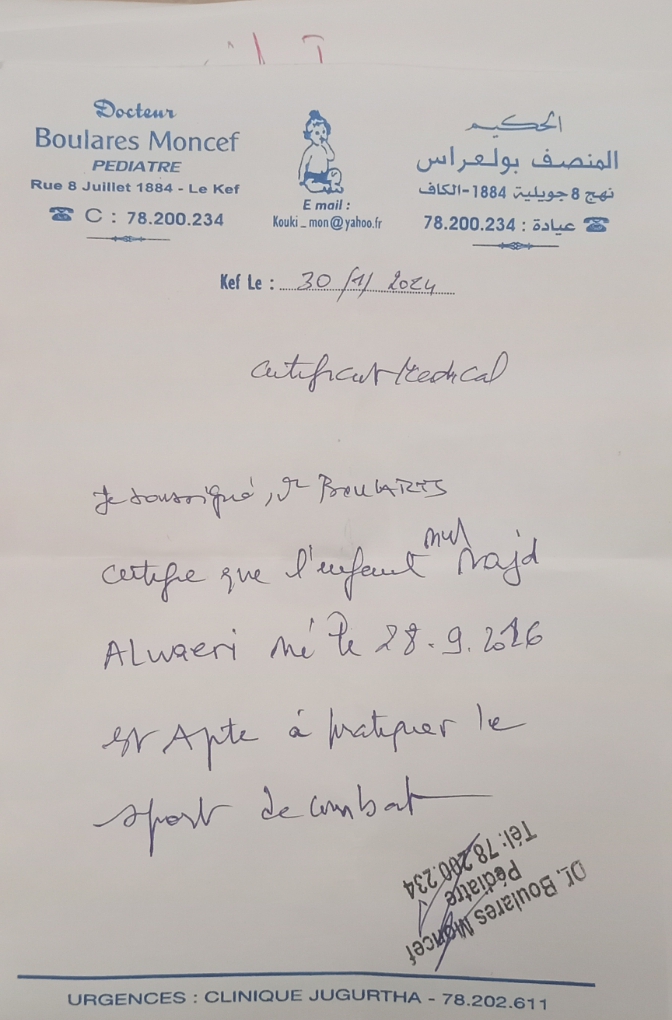 Docteur
Boulares Moncef
PEDIATRE
Rue 8 Juillet 1884 - Le Kef
☎ C : 78.200.234
E mail :
Kouki_mon@yahoo.fr
الحكيم
المنصف بولعراس
نهج 8 جويلية 1884-الكاف
عيادة : 78.200.234 ☎
Kef Le : 30/1/2024
Certificat Medical
Je soussigné, Dr BOULARES
certifie que l'enfant Najd
ALwaeri né le 28.9.2016
est Apte à pratiquer le
sport de combat
Dr. Boulares Moncef
Pédiatre
Tél: 78.200.234
URGENCES : CLINIQUE JUGURTHA - 78.202.611